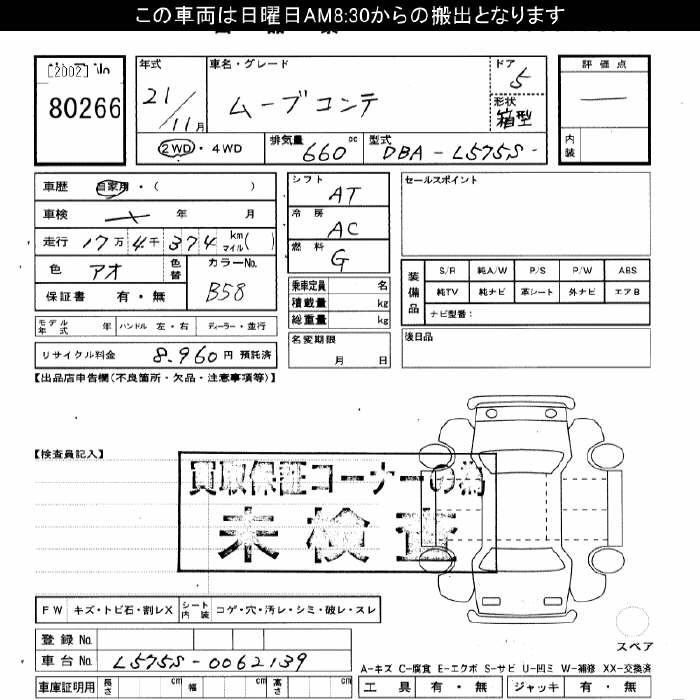 この車両は日曜日AM8:30からの搬出となります
[2002] No
80266
年式 21/11月
車名・グレード ムーブコンテ
ドア 5
形状 箱型
評価点 —
内装
2WD・4WD
排気量 660 cc
型式 DBA-L575S-
車歴 自家用・( )
車検 年 月
走行 17万4千374 km マイル( )
色 アオ 色替
カラーNo. B58
保証書 有・無
モデル年式 年 ハンドル 左・右 ディーラー・並行
リサイクル料金 8.960円 預託済
シフト AT
冷房 AC
燃料 G
乗車定員 名
積載量 kg
総重量 kg
名変期限 月 日
セールスポイント
装備品 S/R 純A/W P/S P/W ABS
純TV 純ナビ 革シート 外ナビ エアB
ナビ型番:
後日品
【出品店申告欄(不良箇所・欠品・注意事項等)】
【検査員記入】
買取保証コーナーの為
未検査
FW キズ・トビ石・割レX シート内装 コゲ・穴・汚レ・シミ・破レ・スレ
スペア
登録No.
車台No. L575S-0062139
A-キズ C-腐食 E-エクボ S-サビ U-凹ミ W-補修 XX-交換済
車庫証明用 長さ cm 幅 cm 高さ cm
工具 有・無 ジャッキ 有・無